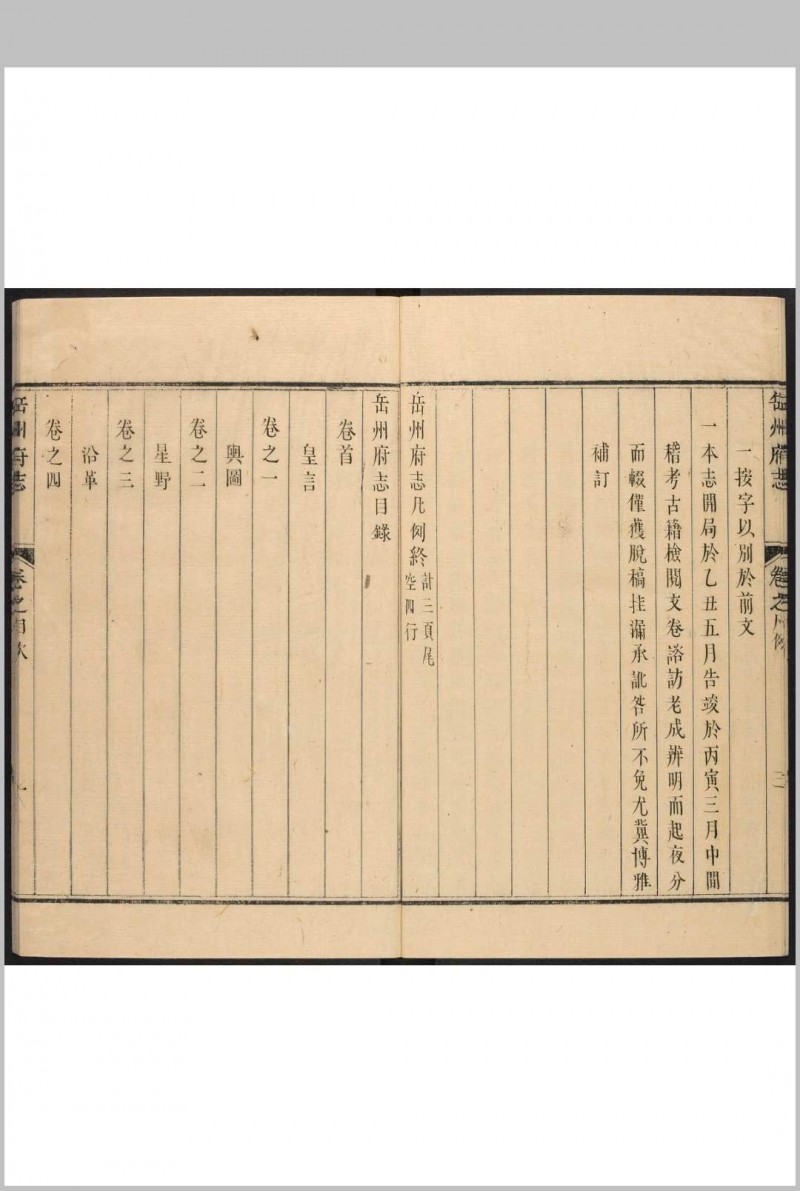 岳州府志
卷之凡例
三
一按字以別於前文
一本志開局於乙丑五月告竣於丙寅三月中間
稽考古籍檢閱文卷諮訪老成辨明而起夜分
而輟僅獲脫稿挂漏承訛咎所不免尤冀博雅
補訂
岳州府志凡例終
計三頁尾
空四行
岳州府志目錄
卷首
皇言
卷之一
輿圖
卷之二
星野
卷之三
沿革
卷之四
岳州府志
卷之目次